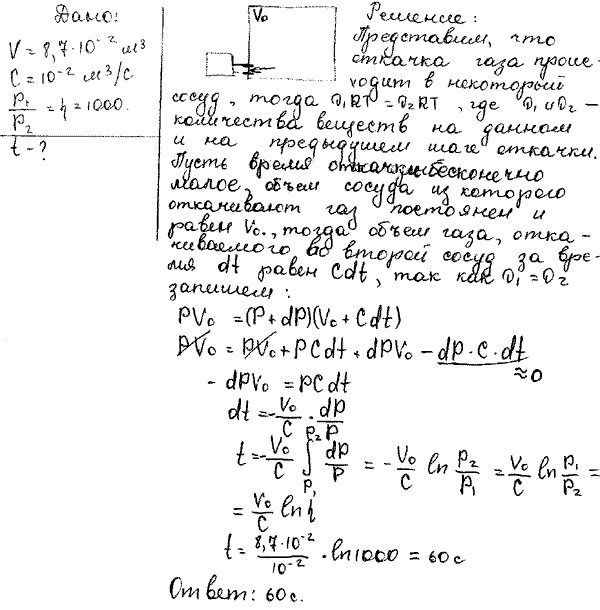 Дано:
V = 8,7·10⁻² м³
C = 10⁻² м³/с
P₁/P₂ = η = 1000.
t - ?
V₀
Решение:
Представим, что
откачка газа проис-
ходит в некоторый
сосуд, тогда ν₁RT = ν₂RT, где ν₁ и ν₂ –
количества веществ на данном
и на предыдущем шаге откачки.
Пусть время откачки бесконечно
малое, объем сосуда из которого
откачивают газ постоянен и
равен V₀., тогда объем газа, отка-
чиваемого во второй сосуд за вре-
мя dt равен Cdt, так как ν₁ = ν₂
запишем:
PV₀ = (P + dP)(V₀ + Cdt)
PV₀ = PV₀ + PCdt + dPV₀ – dP·C·dt
≈0
- dPV₀ = PCdt
dt = -V₀/C · dP/P
t = -V₀/C ∫_{P₁}^{P₂} dP/P = -V₀/C ln P₂/P₁ = V₀/C ln P₁/P₂ =
= V₀/C ln η
t = 8,7·10⁻²/10⁻² · ln1000 = 60 с
Ответ: 60с.